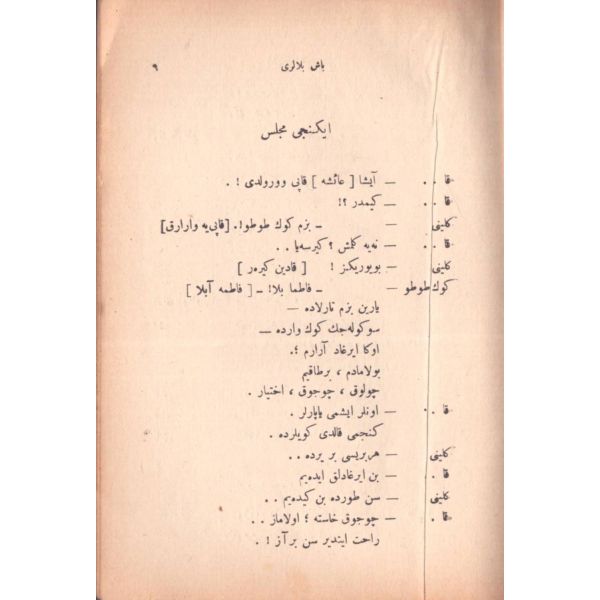 باش بلالری ٩
ایکنجی مجلس
قا . . — آیشا [ عائشه ] قاپی وورولدی ! .
قا . . — کیمدر ؟!
کلینی — ـ بزم کوك طوطو!. [قاپی‌یه وارارق]
قا . . — نه‌یه کلمش ؟ کیرسه‌یا . .
کلینی — بویوریکز ! [ قادین کیره‌ر ]
کوك طوطو — ـ فاطما بلا! ـ [ فاطمه آبلا ]
یارین بزم تارلاده —
سوکوله‌جك کوك وارده —
اوکا ایرغاد آرارم ؛.
بولامادم ، برطاقیم
چولوق ، چوجوق ، اختیار .
قا . . — اونلر ایشمی یاپارلر .
کنجمی قالدی کویلرده .
کلینی — هربریسی بر یرده . .
قا . . — بن ایرغادلق ایده‌یم
کلینی — سن طورده بن کیده‌یم . .
قا . . — چوجوق خاسته ؛ اولاماز . .
راحت ایندیر سن برآز ! .